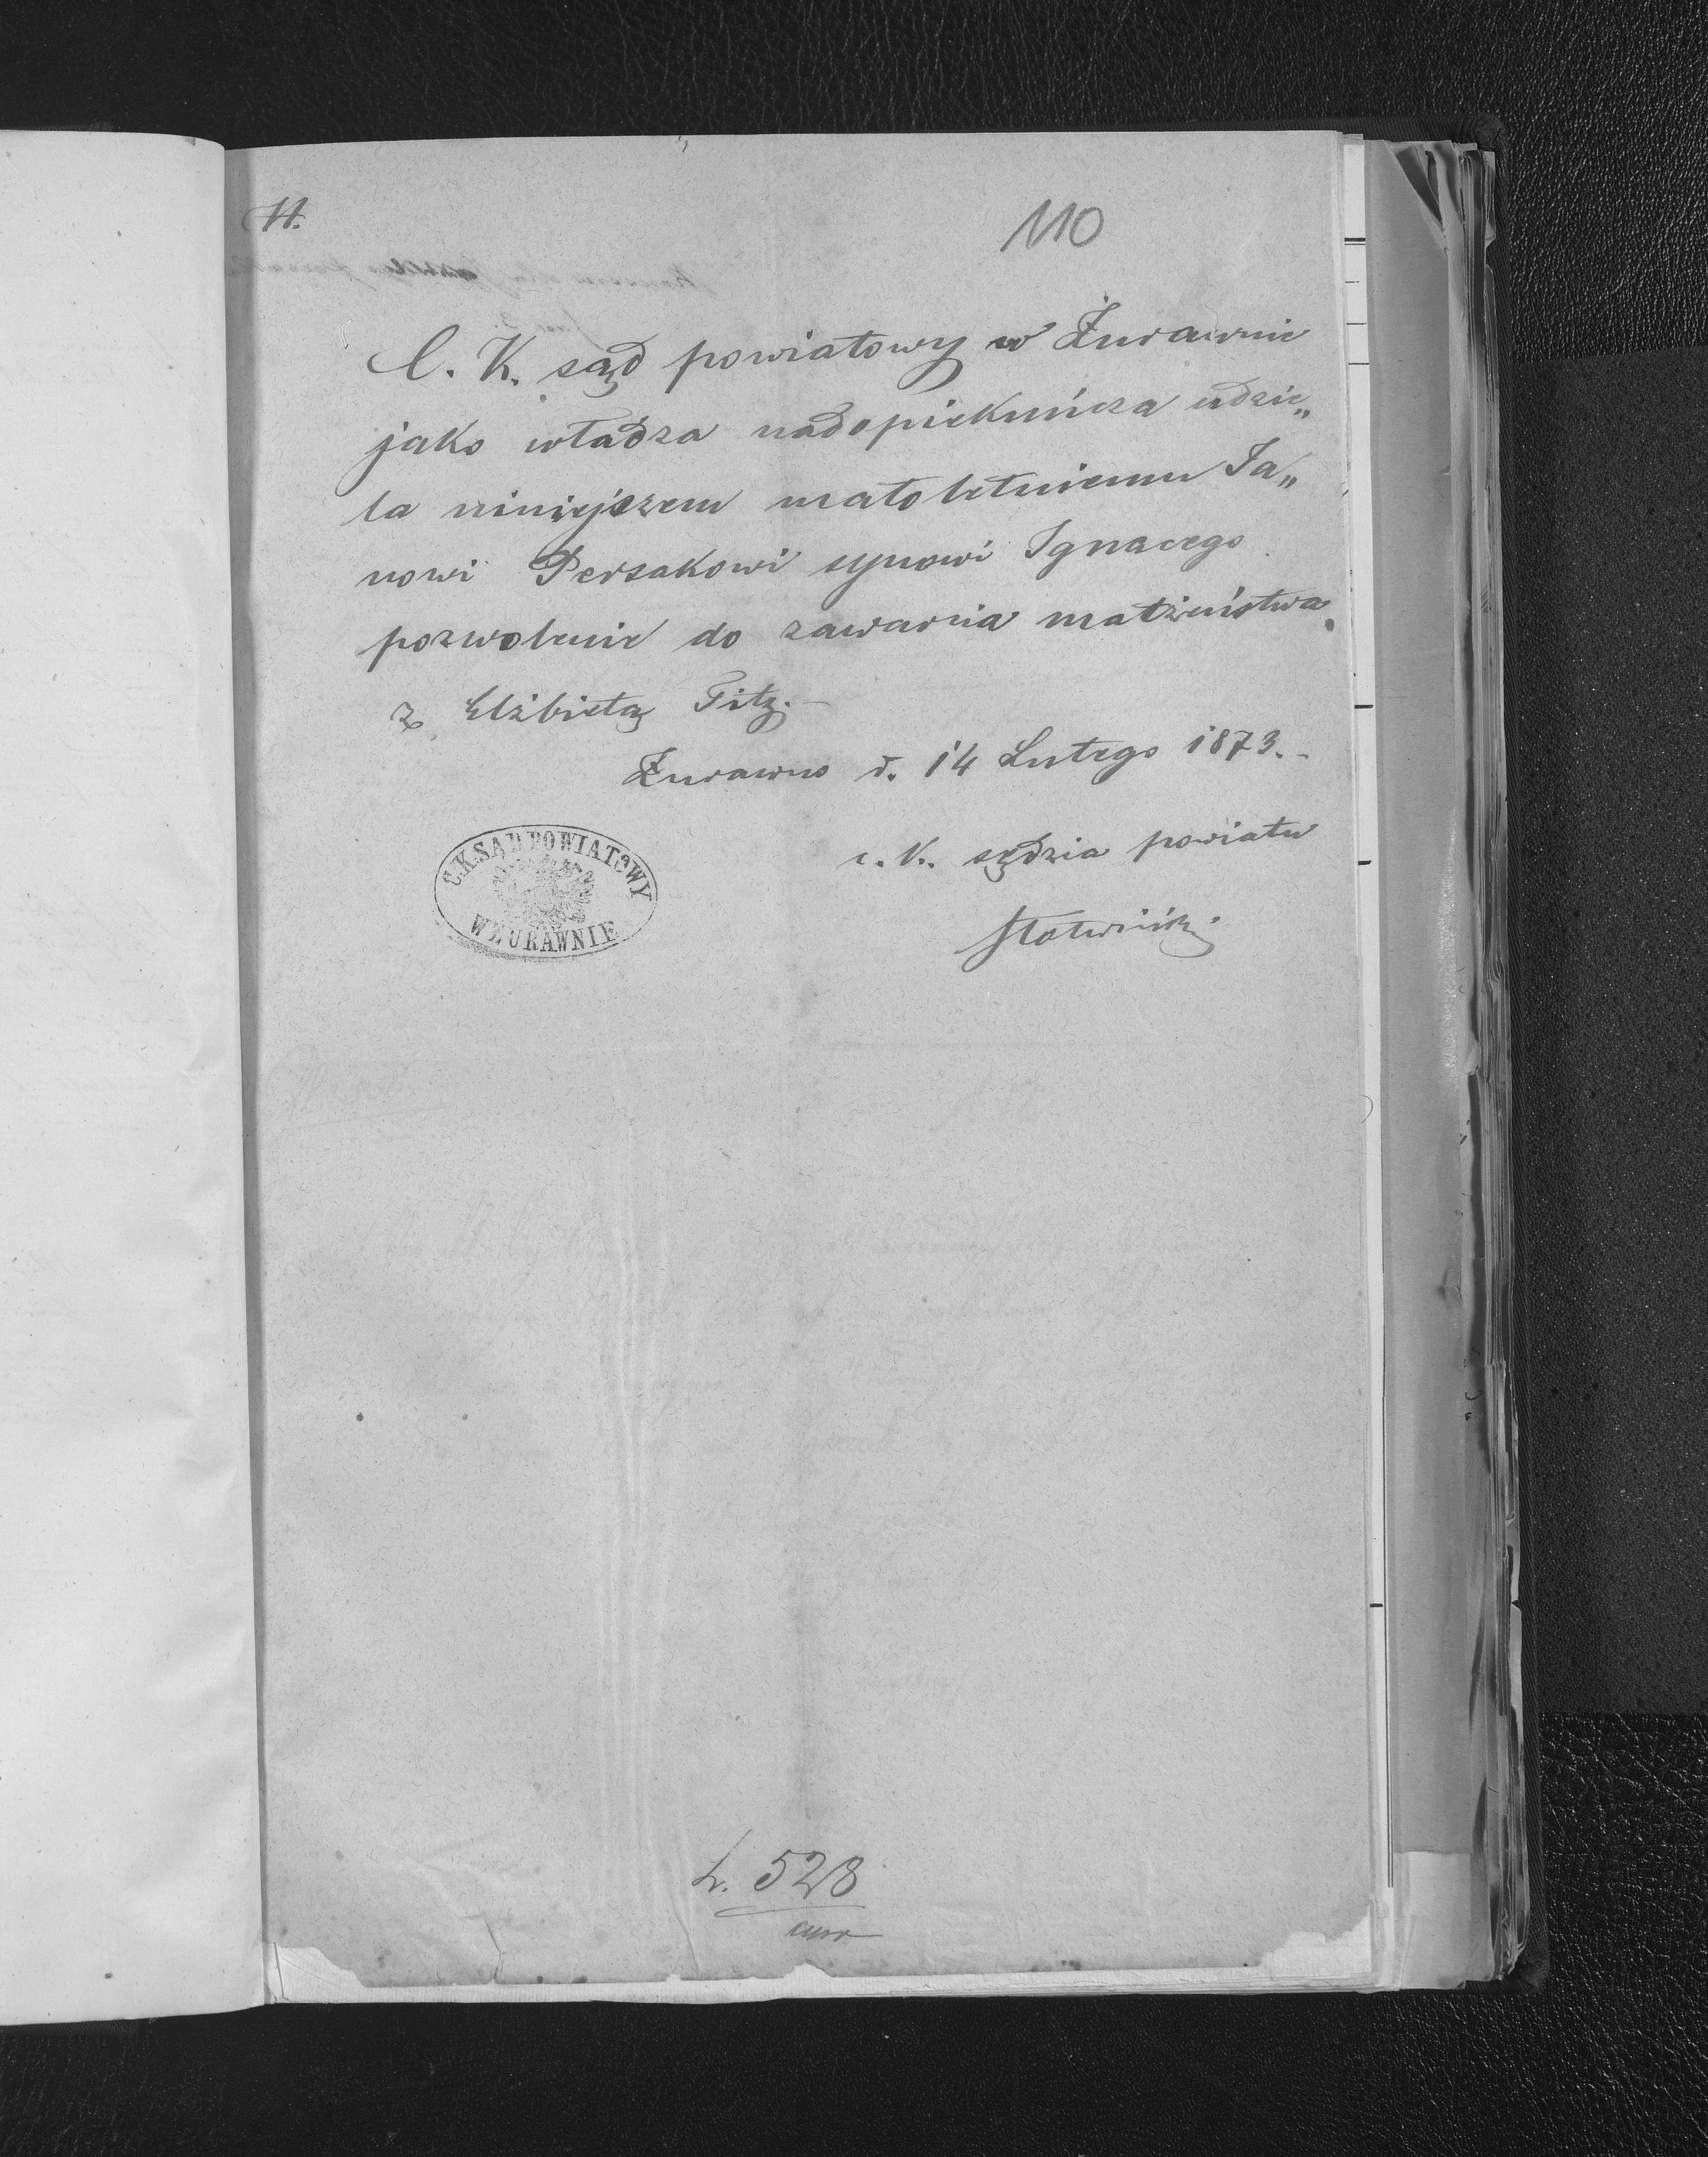 11.
110
C. K. sąd powiatowy w Żurawnie
jako władza nadopiekuńcza udzie„
la niniejszem małoletniemu Ja„
nowi Persakowi synowi Ignacego
pozwolenie do zawarcia małżeństwa
z Elżbietą Titz.-
Żurawno d. 14 Lutego 1873.-
c. k. sędzia powiatu
C.K. SĄD POWIATOWY
W ŻURAWNIE
L. 528